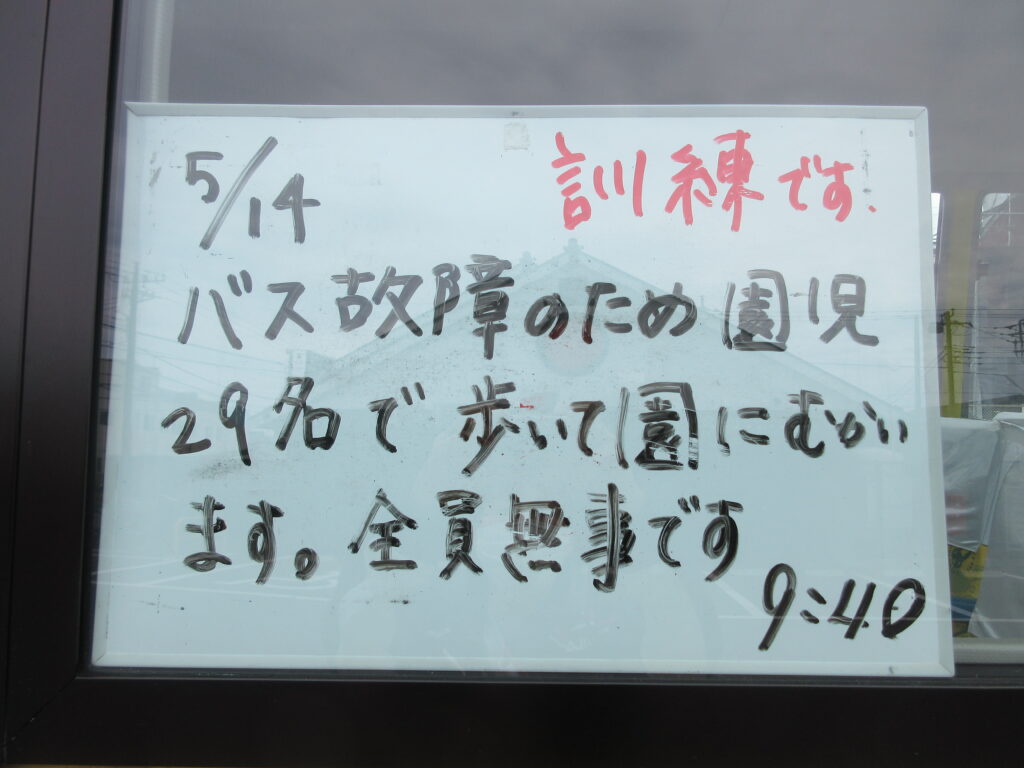 5/14 訓練です.
バス故障のため園児
29名で歩いて園にむかい
ます。全員無事です
9:40